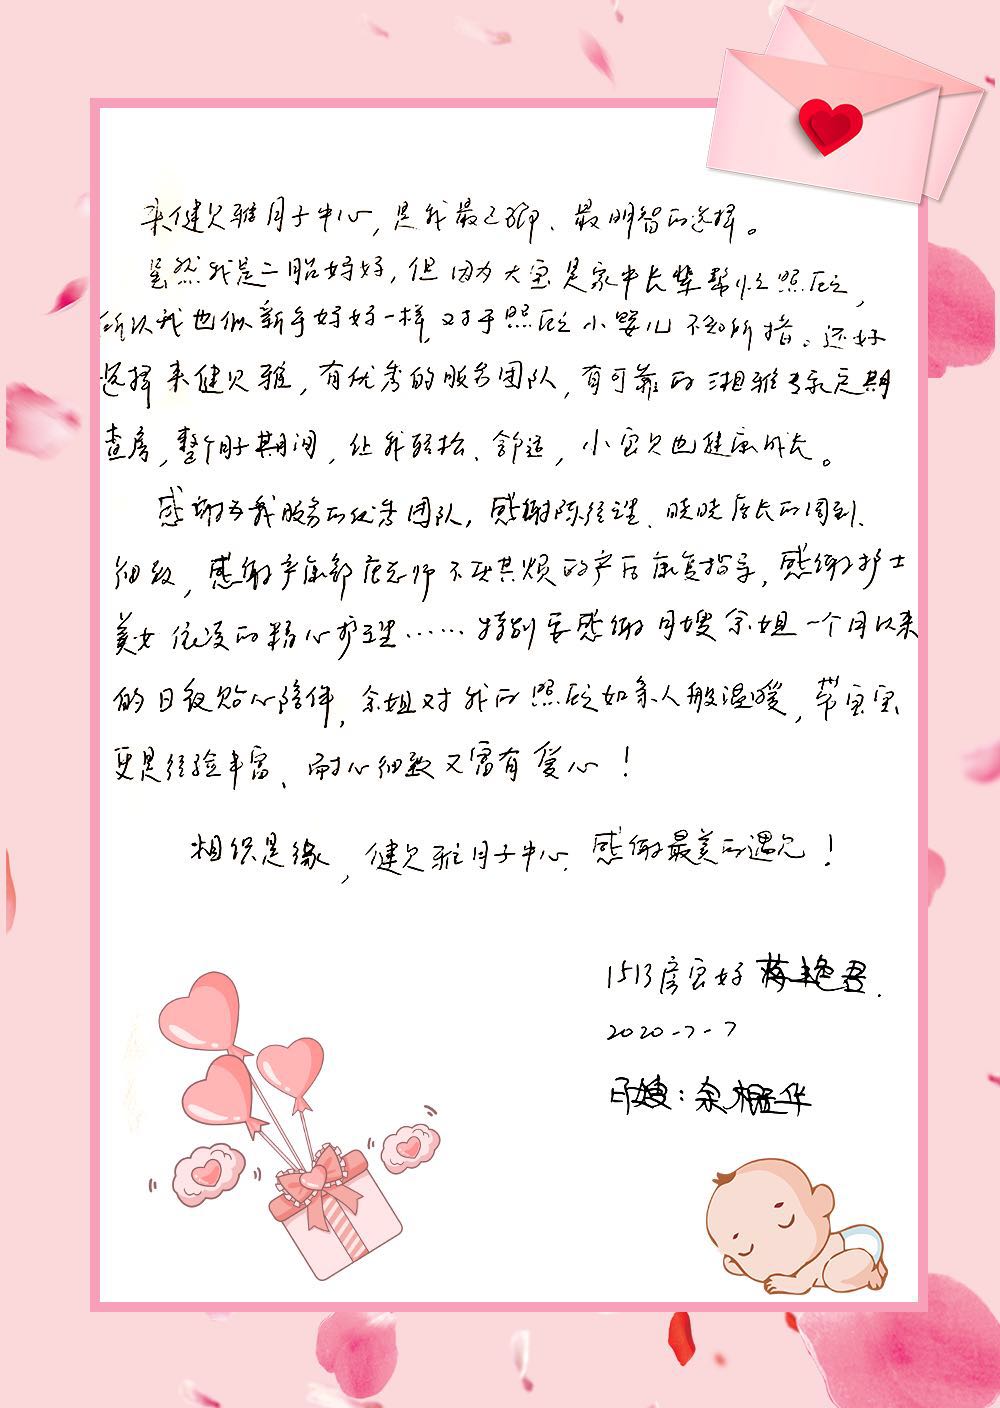 来健贝雅月子中心，是我最正确、最明智的选择。
虽然我是二胎妈妈，但因为大宝是家中长辈帮忙照顾，
所以我也似新手妈妈一样，对于照顾小婴儿不知所措。还好
选择来健贝雅，有优秀的服务团队，有可靠的湘雅专家定期
查房，整个月子期间，让我轻松、舒适，小宝贝也健康成长。
感谢为我服务的优秀团队，感谢陈经理、晓晓店长的周到、
细致，感谢产康部唐老师不厌其烦的产后康复指导，感谢护士
美女依凌的精心护理……特别要感谢月嫂余姐一个月以来
的日夜贴心陪伴，余姐对我的照顾如亲人般温暖，带宝宝
更是经验丰富、耐心细致又富有爱心！
相识是缘，健贝雅月子中心，感谢最美的遇见！
1513房宝妈
2020-7-7
月嫂：余